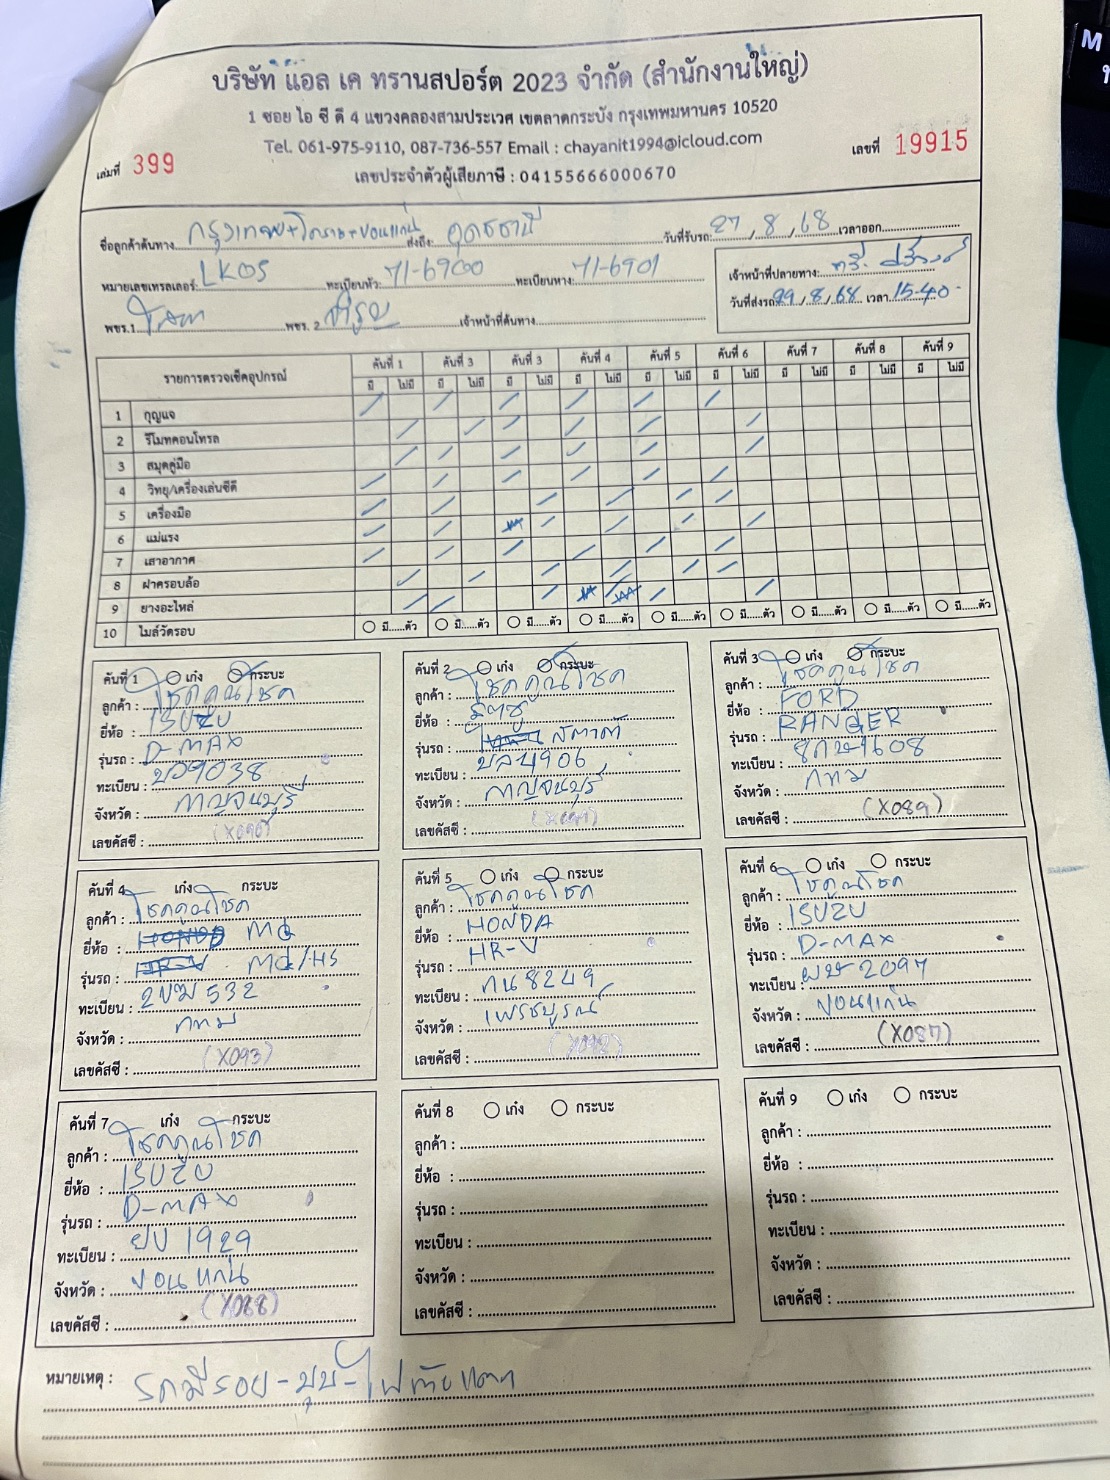 บริษัท แอล เค ทรานสปอร์ต 2023 จำกัด (สำนักงานใหญ่)
1 ซอย ไอ ซี ดี 4 แขวงคลองสามประเวศ เขตลาดกระบัง กรุงเทพมหานคร 10520
Tel. 061-975-9110, 087-736-557 Email : chayanit1994@icloud.com
เล่มที่ 399
เลขที่ 19915
เลขประจำตัวผู้เสียภาษี : 04155666000670
ชื่อลูกค้าต้นทาง กรุงเทพ+โคราช+ขอนแก่น ส่งถึง อุดรธานี วันที่รับรถ 27 / 8 / 68 เวลาออก
หมายเลขเทรลเลอร์: LK05 ทะเบียนหัว: 71-6900 ทะเบียนหาง: 71-6901
เจ้าหน้าที่ปลายทาง:
วันที่ส่งรถ 29 / 8 / 68 เวลา 15.40
พขร.1 พขร. 2 เจ้าหน้าที่ต้นทาง
รายการตรวจเช็คอุปกรณ์ คันที่ 1 คันที่ 3 คันที่ 3 คันที่ 4 คันที่ 5 คันที่ 6 คันที่ 7 คันที่ 8 คันที่ 9
มี ไม่มี มี ไม่มี มี ไม่มี มี ไม่มี มี ไม่มี มี ไม่มี มี ไม่มี มี ไม่มี มี ไม่มี
1 กุญแจ
2 รีโมทคอนโทรล
3 สมุดคู่มือ
4 วิทยุ/เครื่องเล่นซีดี
5 เครื่องมือ
6 แม่แรง
7 เสาอากาศ
8 ฝาครอบล้อ
9 ยางอะไหล่
10 ไมล์วัดรอบ มี.....ตัว มี.....ตัว มี.....ตัว มี.....ตัว มี.....ตัว มี.....ตัว มี.....ตัว มี.....ตัว มี.....ตัว
คันที่ 1 เก๋ง กระบะ
ลูกค้า : โชคคูณโชค
ยี่ห้อ : ISUZU
รุ่นรถ : D-MAX
ทะเบียน : 9038
จังหวัด : กาญจนบุรี
เลขคัสซี :
คันที่ 2 เก๋ง กระบะ
ลูกค้า : โชคคูณโชค
ยี่ห้อ :
รุ่นรถ :
ทะเบียน : 4906
จังหวัด : กาญจนบุรี
เลขคัสซี :
คันที่ 3 เก๋ง กระบะ
ลูกค้า : โชคคูณโชค
ยี่ห้อ : FORD
รุ่นรถ : RANGER
ทะเบียน : 1608
จังหวัด : กทม
เลขคัสซี : (X089)
คันที่ 4 เก๋ง กระบะ
ลูกค้า : โชคคูณโชค
ยี่ห้อ : MG
รุ่นรถ : MG/HS
ทะเบียน : 2ขฆ 532
จังหวัด : กทม
เลขคัสซี : (X093)
คันที่ 5 เก๋ง กระบะ
ลูกค้า : โชคคูณโชค
ยี่ห้อ : HONDA
รุ่นรถ : HR-V
ทะเบียน : กน 8249
จังหวัด : เพรชบูรณ์
เลขคัสซี :
คันที่ 6 เก๋ง กระบะ
ลูกค้า : โชคูณโชค
ยี่ห้อ : ISUZU
รุ่นรถ : D-MAX
ทะเบียน : ผษ 2097
จังหวัด : ขอนแก่น
เลขคัสซี : (X087)
คันที่ 7 เก๋ง กระบะ
ลูกค้า : โชคคูณโชค
ยี่ห้อ : ISUZU
รุ่นรถ : D-MAX
ทะเบียน : ยบ 1929
จังหวัด : ขอนแก่น
เลขคัสซี : (X088)
คันที่ 8 เก๋ง กระบะ
ลูกค้า :
ยี่ห้อ :
รุ่นรถ :
ทะเบียน :
จังหวัด :
เลขคัสซี :
คันที่ 9 เก๋ง กระบะ
ลูกค้า :
ยี่ห้อ :
รุ่นรถ :
ทะเบียน :
จังหวัด :
เลขคัสซี :
หมายเหตุ : รถมีรอย-บุบ-ไฟท้ายแตก